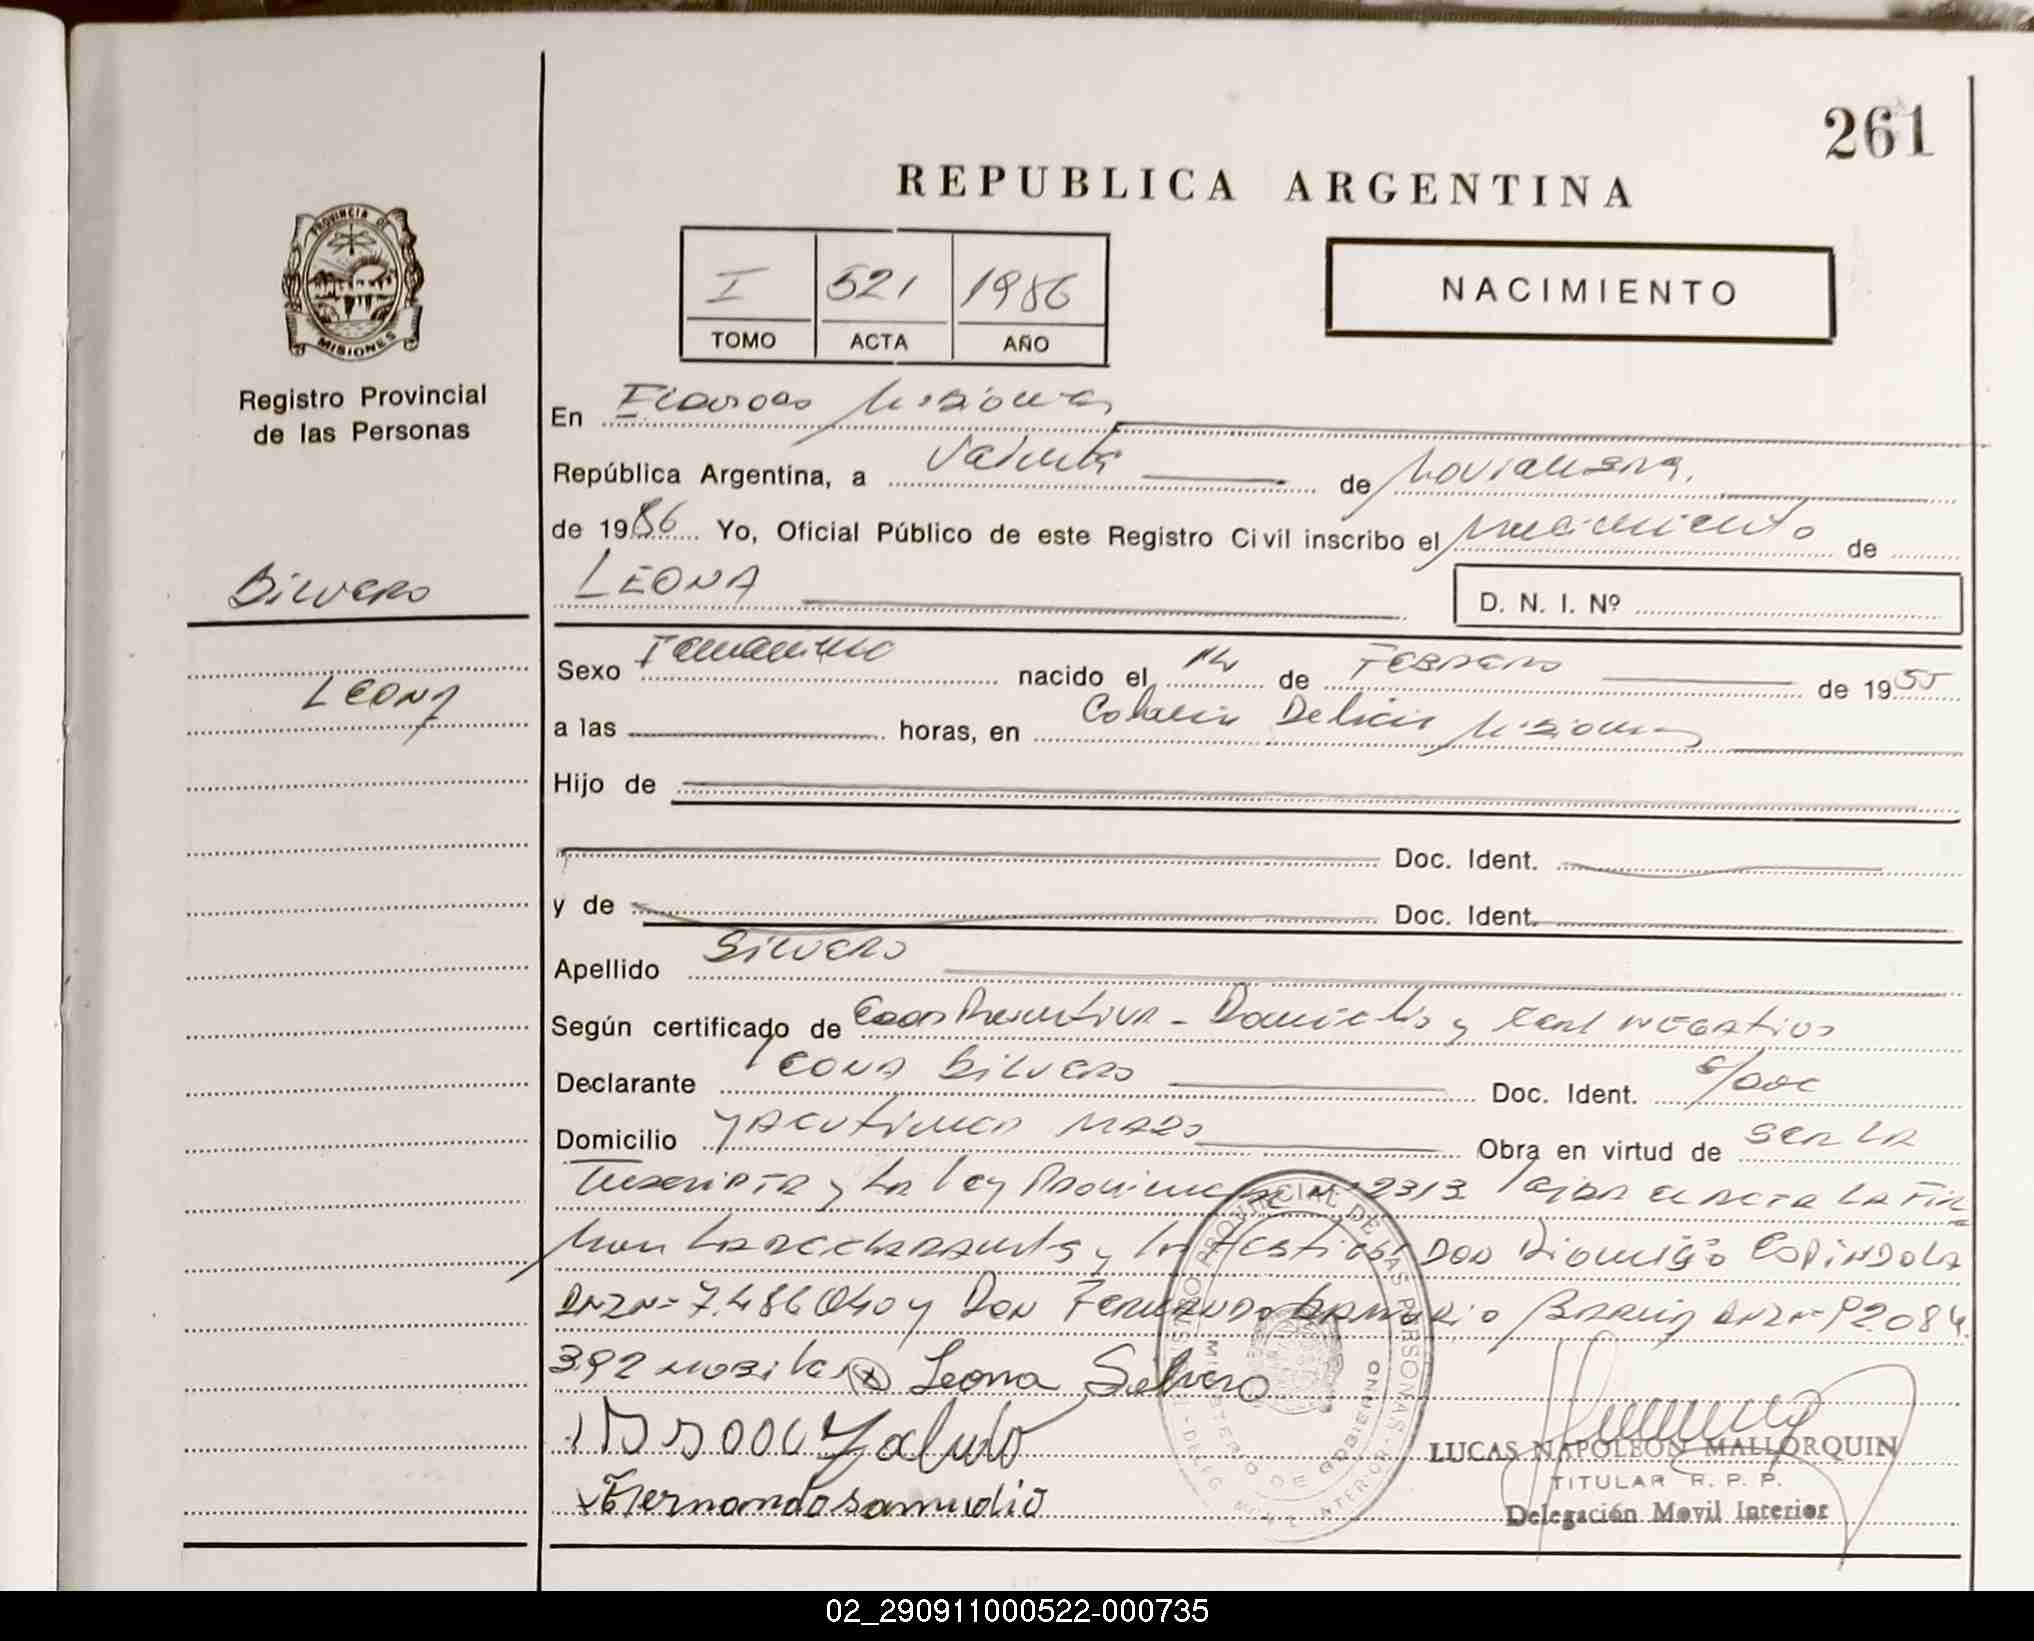 261
REPUBLICA ARGENTINA
PROVINCIA DE
MISIONES
Registro Provincial
de las Personas
I 521 1986
TOMO ACTA AÑO
NACIMIENTO
En Eldorado Misiones
República Argentina, a Veinte de Noviembre
de 1986 Yo, Oficial Público de este Registro Civil inscribo el nacimiento de
Silvero
LEONA
D. N. I. Nº
Sexo Femenino nacido el 14 de FEBRERO de 1955
Leona
a las horas, en Colonia Delicia Misiones
Hijo de
Doc. Ident.
y de Doc. Ident.
Apellido SILVERO
Según certificado de Domicilio y NEGATIVO
Declarante Leona Silvero Doc. Ident. s/doc
Domicilio Obra en virtud de SER LA
Inscripta y La Ley Provincial Nº 2313 el ACTA LA FIR
man La declarante y los testigos DON Dionisio ESPINDOLA
DNI Nº 7.486.040 y Don Fernando DNI Nº 92.084.
392 Leona Silvero
Fernando samudio
REGISTRO PROVINCIAL DE LAS PERSONAS
MINISTERIO DE GOBIERNO
LUCAS NAPOLEON MALLORQUIN
TITULAR R. P. P.
Delegación Movil Interior
02_290911000522-000735